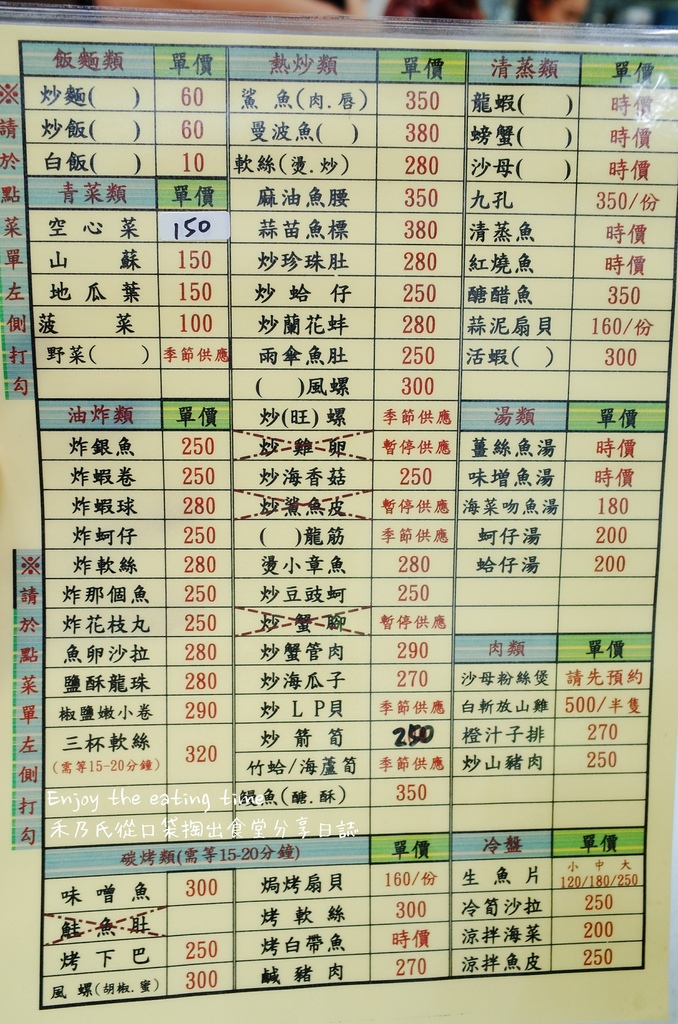 ※請於點菜單左側打勾
飯麵類 單價
炒麵( ) 60
炒飯( ) 60
白飯( ) 10
青菜類 單價
空心菜 150
山蘇 150
地瓜葉 150
菠菜 100
野菜( ) 季節供應
油炸類 單價
炸銀魚 250
炸蝦卷 250
炸蝦球 280
炸蚵仔 250
炸軟絲 280
炸那個魚 250
炸花枝丸 250
魚卵沙拉 280
鹽酥龍珠 280
椒鹽嫩小卷 290
三杯軟絲 320
(需等15-20分鐘)
※請於點菜單左側打勾
熱炒類 單價
鯊魚(肉.唇) 350
曼波魚( ) 380
軟絲(燙.炒) 280
麻油魚腰 350
蒜苗魚標 380
炒珍珠肚 280
炒蛤仔 250
炒蘭花蚌 280
雨傘魚肚 250
( )風螺 300
炒(旺)螺 季節供應
炒雞卵 暫停供應
炒海香菇 250
炒鯊魚皮 暫停供應
( )龍筋 季節供應
燙小章魚 280
炒豆豉蚵 250
炒蟹腳 暫停供應
炒蟹管肉 290
炒海瓜子 270
炒LP貝 季節供應
炒箭筍 250
竹蛤/海蘆筍 季節供應
鰻魚(醣.酥) 350
清蒸類 單價
龍蝦( ) 時價
螃蟹( ) 時價
沙母( ) 時價
九孔 350/份
清蒸魚 時價
紅燒魚 時價
醣醋魚 350
蒜泥扇貝 160/份
活蝦( ) 300
湯類 單價
薑絲魚湯 時價
味增魚湯 時價
海菜吻魚湯 180
蚵仔湯 200
蛤仔湯 200
肉類 單價
沙母粉絲煲 請先預約
白斬放山雞 500/半隻
橙汁子排 270
炒山豬肉 250
Enjoy the eating time
禾乃氏從口袋掏出食堂分享日誌
碳烤類(需等15-20分鐘) 單價
味噌魚 300
鮭魚肚
烤下巴 250
風螺(胡椒.蜜) 300
焗烤扇貝 160/份
烤軟絲 300
烤白帶魚 時價
鹹豬肉 270
冷盤 單價
生魚片 小 中 大 120/180/250
冷筍沙拉 250
涼拌海菜 200
涼拌魚皮 250